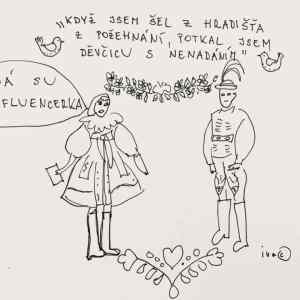 „KDYŽ JSEM ŠEL Z HRADIŠŤA
Z POŽEHNÁNÍ, POTKAL JSEM
DĚVČICU S NENADÁNÍ"
Á SU
FLUENCERKA